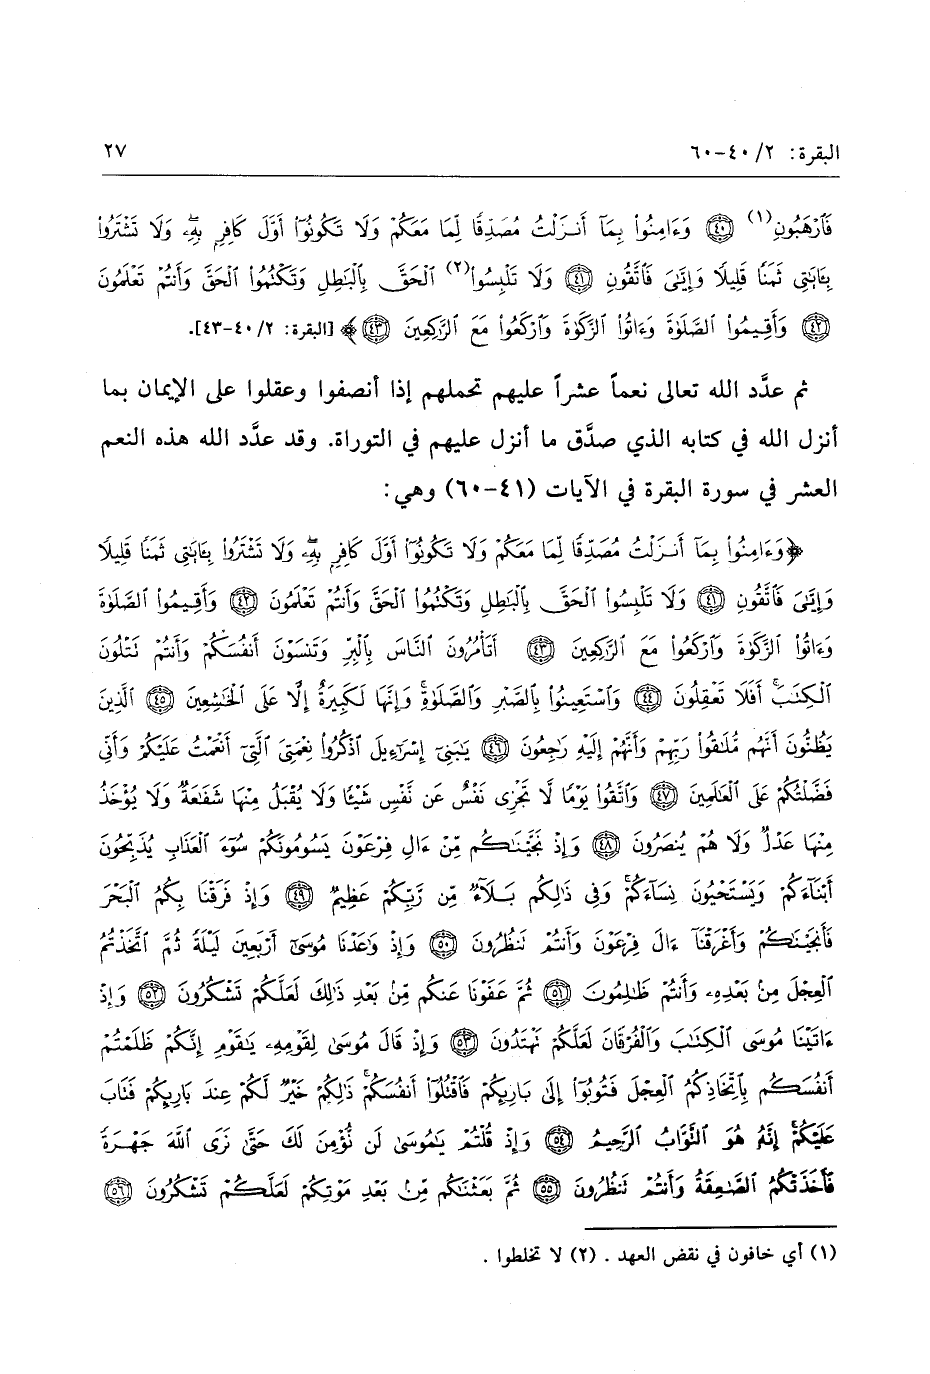 البقرة: ٢/ ٤٠-٦٠ ٢٧
فَٱرْهَبُونِ(١) ﴿٤٠﴾ وَءَامِنُوا۟ بِمَآ أَنزَلْتُ مُصَدِّقًا لِّمَا مَعَكُمْ وَلَا تَكُونُوٓا۟ أَوَّلَ كَافِرٍۭ بِهِۦ ۖ وَلَا تَشْتَرُوا۟
بِـَٔايَـٰتِى ثَمَنًا قَلِيلًا وَإِيَّـٰىَ فَٱتَّقُونِ ﴿٤١﴾ وَلَا تَلْبِسُوا۟(٢) ٱلْحَقَّ بِٱلْبَـٰطِلِ وَتَكْتُمُوا۟ ٱلْحَقَّ وَأَنتُمْ تَعْلَمُونَ
﴿٤٢﴾ وَأَقِيمُوا۟ ٱلصَّلَوٰةَ وَءَاتُوا۟ ٱلزَّكَوٰةَ وَٱرْكَعُوا۟ مَعَ ٱلرَّٰكِعِينَ ﴿٤٣﴾﴾ [البقرة: ٢/ ٤٠-٤٣].
ثم عدَّد الله تعالى نعماً عشراً عليهم تحملهم إذا أنصفوا وعقلوا على الإيمان بما
أنزل الله في كتابه الذي صدَّق ما أنزل عليهم في التوراة. وقد عدَّد الله هذه النعم
العشر في سورة البقرة في الآيات (٤١-٦٠) وهي:
﴿وَءَامِنُوا۟ بِمَآ أَنزَلْتُ مُصَدِّقًا لِّمَا مَعَكُمْ وَلَا تَكُونُوٓا۟ أَوَّلَ كَافِرٍۭ بِهِۦ ۖ وَلَا تَشْتَرُوا۟ بِـَٔايَـٰتِى ثَمَنًا قَلِيلًا
وَإِيَّـٰىَ فَٱتَّقُونِ ﴿٤١﴾ وَلَا تَلْبِسُوا۟ ٱلْحَقَّ بِٱلْبَـٰطِلِ وَتَكْتُمُوا۟ ٱلْحَقَّ وَأَنتُمْ تَعْلَمُونَ ﴿٤٢﴾ وَأَقِيمُوا۟ ٱلصَّلَوٰةَ
وَءَاتُوا۟ ٱلزَّكَوٰةَ وَٱرْكَعُوا۟ مَعَ ٱلرَّٰكِعِينَ ﴿٤٣﴾ أَتَأْمُرُونَ ٱلنَّاسَ بِٱلْبِرِّ وَتَنسَوْنَ أَنفُسَكُمْ وَأَنتُمْ تَتْلُونَ
ٱلْكِتَـٰبَ ۚ أَفَلَا تَعْقِلُونَ ﴿٤٤﴾ وَٱسْتَعِينُوا۟ بِٱلصَّبْرِ وَٱلصَّلَوٰةِ ۚ وَإِنَّهَا لَكَبِيرَةٌ إِلَّا عَلَى ٱلْخَـٰشِعِينَ ﴿٤٥﴾ ٱلَّذِينَ
يَظُنُّونَ أَنَّهُم مُّلَـٰقُوا۟ رَبِّهِمْ وَأَنَّهُمْ إِلَيْهِ رَٰجِعُونَ ﴿٤٦﴾ يَـٰبَنِىٓ إِسْرَٰٓءِيلَ ٱذْكُرُوا۟ نِعْمَتِىَ ٱلَّتِىٓ أَنْعَمْتُ عَلَيْكُمْ وَأَنِّى
فَضَّلْتُكُمْ عَلَى ٱلْعَـٰلَمِينَ ﴿٤٧﴾ وَٱتَّقُوا۟ يَوْمًا لَّا تَجْزِى نَفْسٌ عَن نَّفْسٍ شَيْـًٔا وَلَا يُقْبَلُ مِنْهَا شَفَـٰعَةٌ وَلَا يُؤْخَذُ
مِنْهَا عَدْلٌ وَلَا هُمْ يُنصَرُونَ ﴿٤٨﴾ وَإِذْ نَجَّيْنَـٰكُم مِّنْ ءَالِ فِرْعَوْنَ يَسُومُونَكُمْ سُوٓءَ ٱلْعَذَابِ يُذَبِّحُونَ
أَبْنَآءَكُمْ وَيَسْتَحْيُونَ نِسَآءَكُمْ ۚ وَفِى ذَٰلِكُم بَلَآءٌ مِّن رَّبِّكُمْ عَظِيمٌ ﴿٤٩﴾ وَإِذْ فَرَقْنَا بِكُمُ ٱلْبَحْرَ
فَأَنجَيْنَـٰكُمْ وَأَغْرَقْنَآ ءَالَ فِرْعَوْنَ وَأَنتُمْ تَنظُرُونَ ﴿٥٠﴾ وَإِذْ وَٰعَدْنَا مُوسَىٰٓ أَرْبَعِينَ لَيْلَةً ثُمَّ ٱتَّخَذْتُمُ
ٱلْعِجْلَ مِنۢ بَعْدِهِۦ وَأَنتُمْ ظَـٰلِمُونَ ﴿٥١﴾ ثُمَّ عَفَوْنَا عَنكُم مِّنۢ بَعْدِ ذَٰلِكَ لَعَلَّكُمْ تَشْكُرُونَ ﴿٥٢﴾ وَإِذْ
ءَاتَيْنَا مُوسَى ٱلْكِتَـٰبَ وَٱلْفُرْقَانَ لَعَلَّكُمْ تَهْتَدُونَ ﴿٥٣﴾ وَإِذْ قَالَ مُوسَىٰ لِقَوْمِهِۦ يَـٰقَوْمِ إِنَّكُمْ ظَلَمْتُمْ
أَنفُسَكُم بِٱتِّخَاذِكُمُ ٱلْعِجْلَ فَتُوبُوٓا۟ إِلَىٰ بَارِئِكُمْ فَٱقْتُلُوٓا۟ أَنفُسَكُمْ ۚ ذَٰلِكُمْ خَيْرٌ لَّكُمْ عِندَ بَارِئِكُمْ فَتَابَ
عَلَيْكُمْ ۚ إِنَّهُۥ هُوَ ٱلتَّوَّابُ ٱلرَّحِيمُ ﴿٥٤﴾ وَإِذْ قُلْتُمْ يَـٰمُوسَىٰ لَن نُّؤْمِنَ لَكَ حَتَّىٰ نَرَى ٱللَّهَ جَهْرَةً
فَأَخَذَتْكُمُ ٱلصَّـٰعِقَةُ وَأَنتُمْ تَنظُرُونَ ﴿٥٥﴾ ثُمَّ بَعَثْنَـٰكُم مِّنۢ بَعْدِ مَوْتِكُمْ لَعَلَّكُمْ تَشْكُرُونَ ﴿٥٦﴾
(١) أي خافون في نقض العهد . (٢) لا تخلطوا .